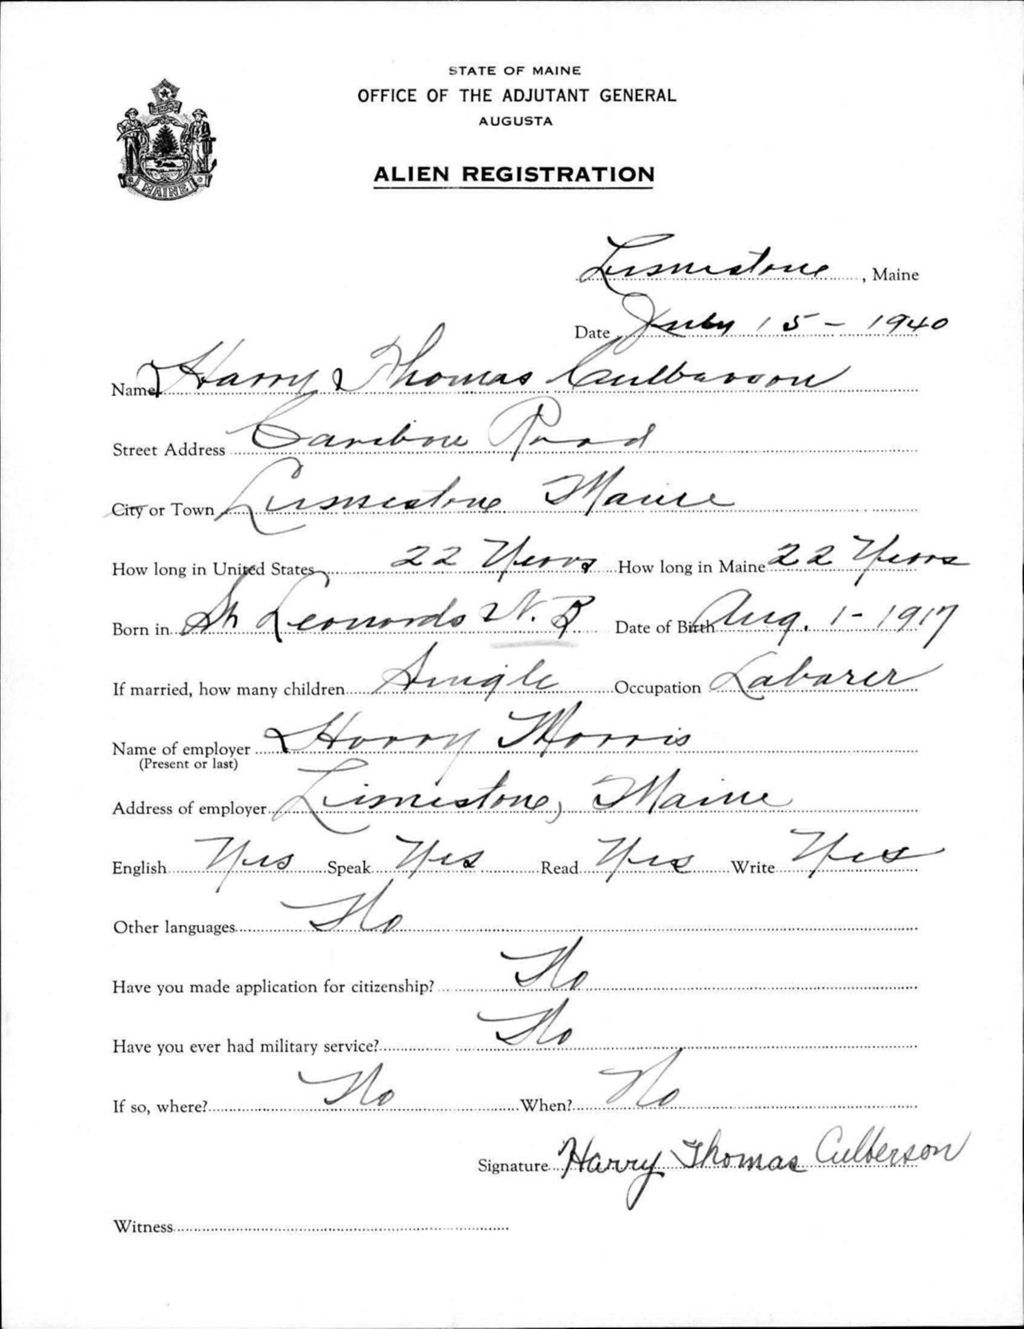 STATE OF MAINE
OFFICE OF THE ADJUTANT GENERAL
AUGUSTA
ALIEN REGISTRATION
MAINE
Limestone, Maine
Date July 15 - 1940
Name Harry Thomas Culberson
Street Address Caribou Road
City or Town Limestone Maine
How long in United States 22 Years How long in Maine 22 Years
Born in St Leonards N.B Date of Birth Aug. 1 - 1917
If married, how many children Single Occupation Labarer
Name of employer Harry Morris
(Present or last)
Address of employer Limestone, Maine
English Yes Speak Yes Read Yes Write Yes
Other languages No
Have you made application for citizenship? No
Have you ever had military service? No
If so, where? No When? No
Signature Harry Thomas Culberson
Witness